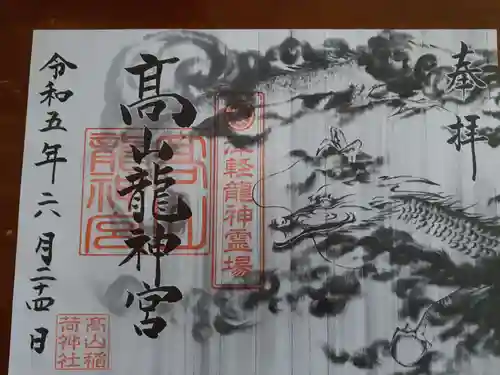 奉拝
津軽龍神霊場
髙山龍神宮
高山
龍神宮
令和五年六月二十四日
高山稲
荷神社